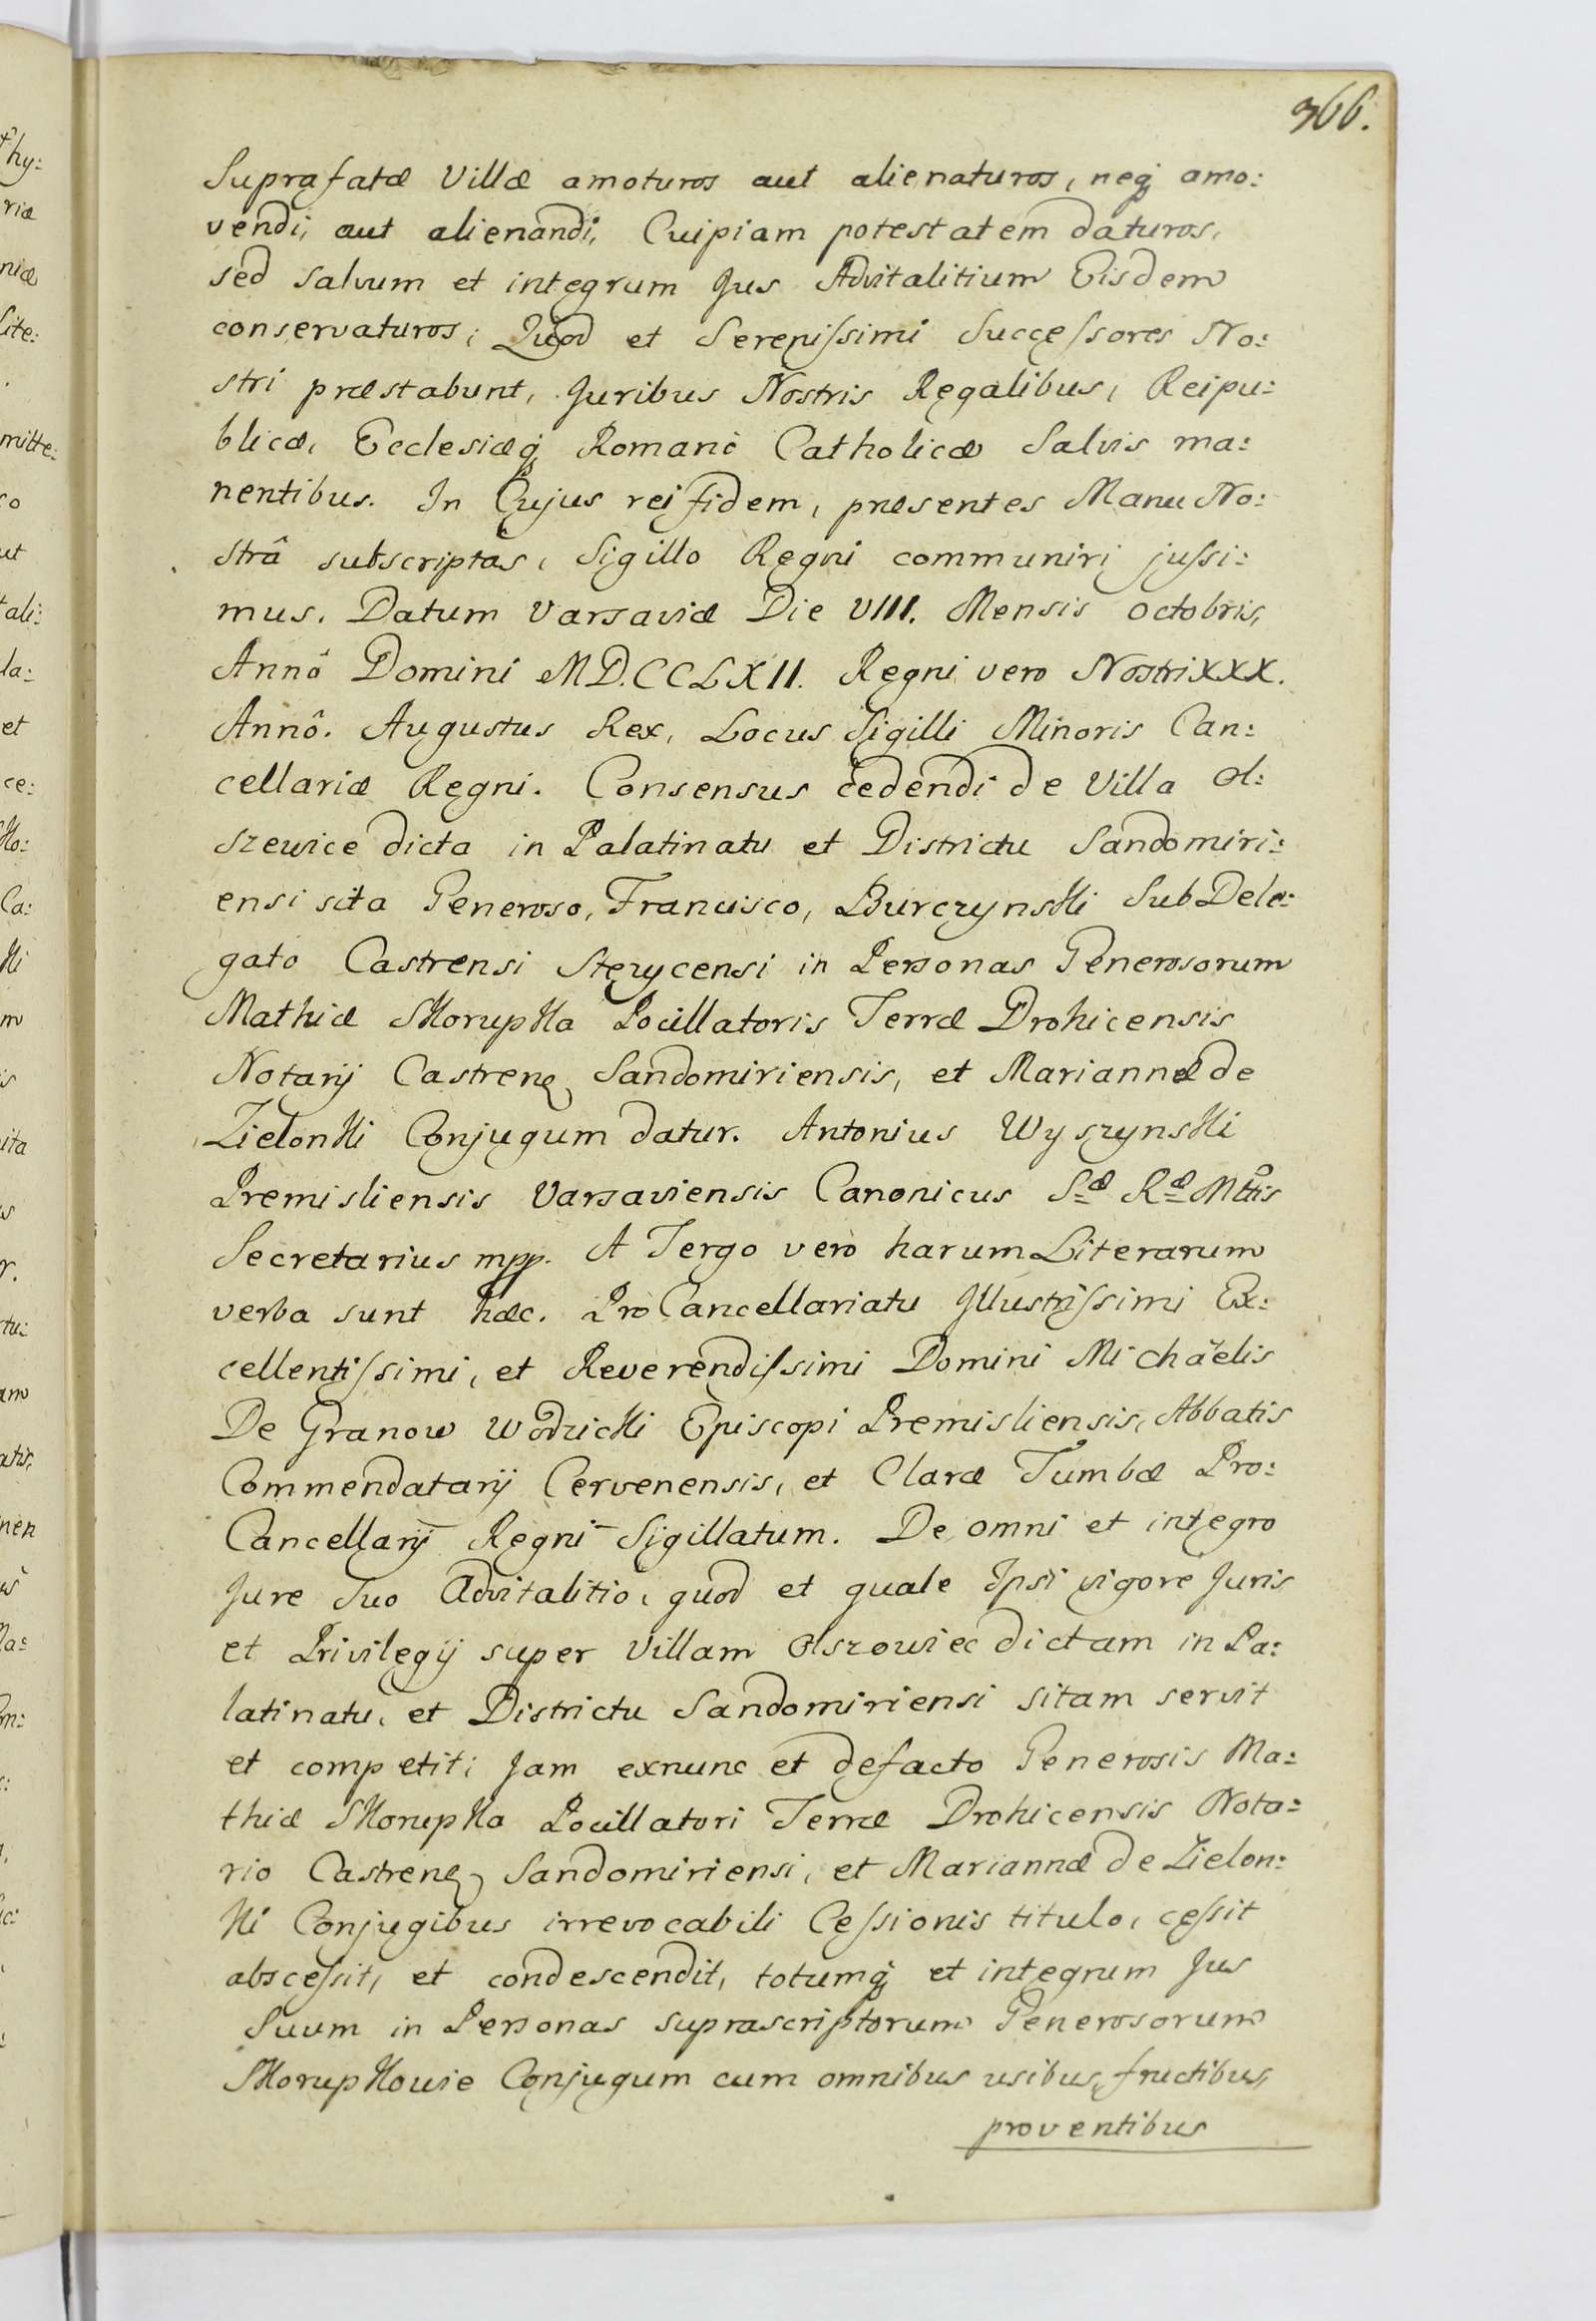 366.
Suprafatæ Villæ amoturos aut alienaturos, neq; amo:
vendi, aut alienandi, Cuipiam potestatem daturos,
sed salvum et integrum Jus Advitalitium Eisdem
conservaturos; Quod et Serenissimi Successores No:
stri præstabunt, Juribus Nostris Regalibus, Reipu:
blicæ, Ecclesiæq; Romanô Catholicæ Salvis ma:
nentibus. In Cujus rei fidem, præsentes Manu No:
strâ subscriptas, Sigillo Regni communiri jussi:
mus. Datum Varsaviæ Die VIII. Mensis Octobris,
Annô Domini MD.CCLXII. Regni vero Nostri XXX.
Annô. Augustus Rex, Locus Sigilli Minoris Can:
cellariæ Regni. Consensus cedendi de Villa Ol:
szewice dicta in Palatinatu et Districtu Sandomiri:
ensi sita Generoso, Francisco, Burczynski SubDele:
gato Castrensi Stezycensi in Personas Generosorum
Mathiæ Skorupka Pocillatoris Terræ Drohicensis
Notarij Castren Sandomiriensis, et Mariannæ de
Zielonki Conjugum datur. Antonius Wyszynski
Premisliensis Varsaviensis Canonicus Sæ Ræ Mttis
Secretarius mpp. A Tergo vero harum Literarum
verba sunt hæc. ProCancellariatu Illustrissimi Ex:
cellentissimi, et Reverendissimi Domini Michaëlis
De Granow Wodzicki Episcopi Premisliensis, Abbatis
Commendatarij Cervenensis, et Claræ Tumbæ Pro:
Cancellarij Regni Sigillatum. De omni et integro
Jure Suo Advitalitio, quod et quale Ipsi vigore Juris
et Privilegij super Villam Olszowiec dictam in Pa:
latinatu, et Districtu Sandomiriensi sitam servit
et competit; Jam exnunc et defacto Generosis Ma:
thiæ Skorupka Pocillatori Terræ Drohicensis Nota:
rio Castren Sandomiriensi, et Mariannæ de Zielon:
ki Conjugibus irrevocabili Cessionis titulo, cessit
abscessit, et condescendit, totumq; et integrum Jus
Suum in Personas suprascriptorum Generosorum
Skorupkowie Conjugum cum omnibus usibus, fructibus,
proventibus